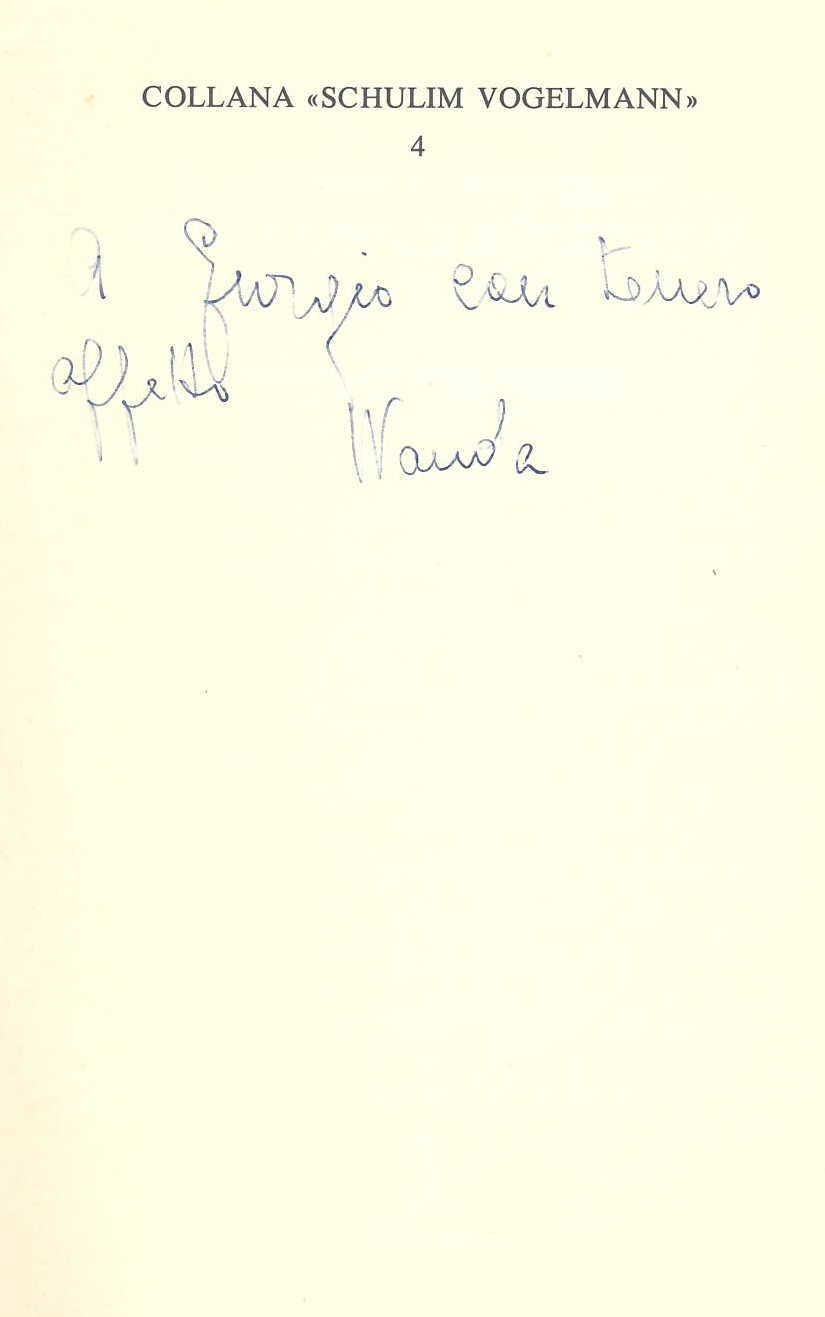 COLLANA «SCHULIM VOGELMANN»
4
A Giorgio con tenero
affetto
Wanda